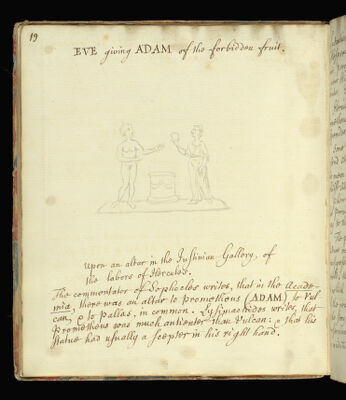 19
EVE giving ADAM of the forbidden fruit.
Upon an altar in the Justinian Gallery, of
the labors of Hercules.
The commentator of Sophocles writes, that in the Acade-
mia, there was an altar to prometheus (ADAM) to Vul-
can, & to pallas, in common. Lysimachides writes, that
prometheus was much antienter than Vulcan: & that his
statue had usually a scepter in his right hand.